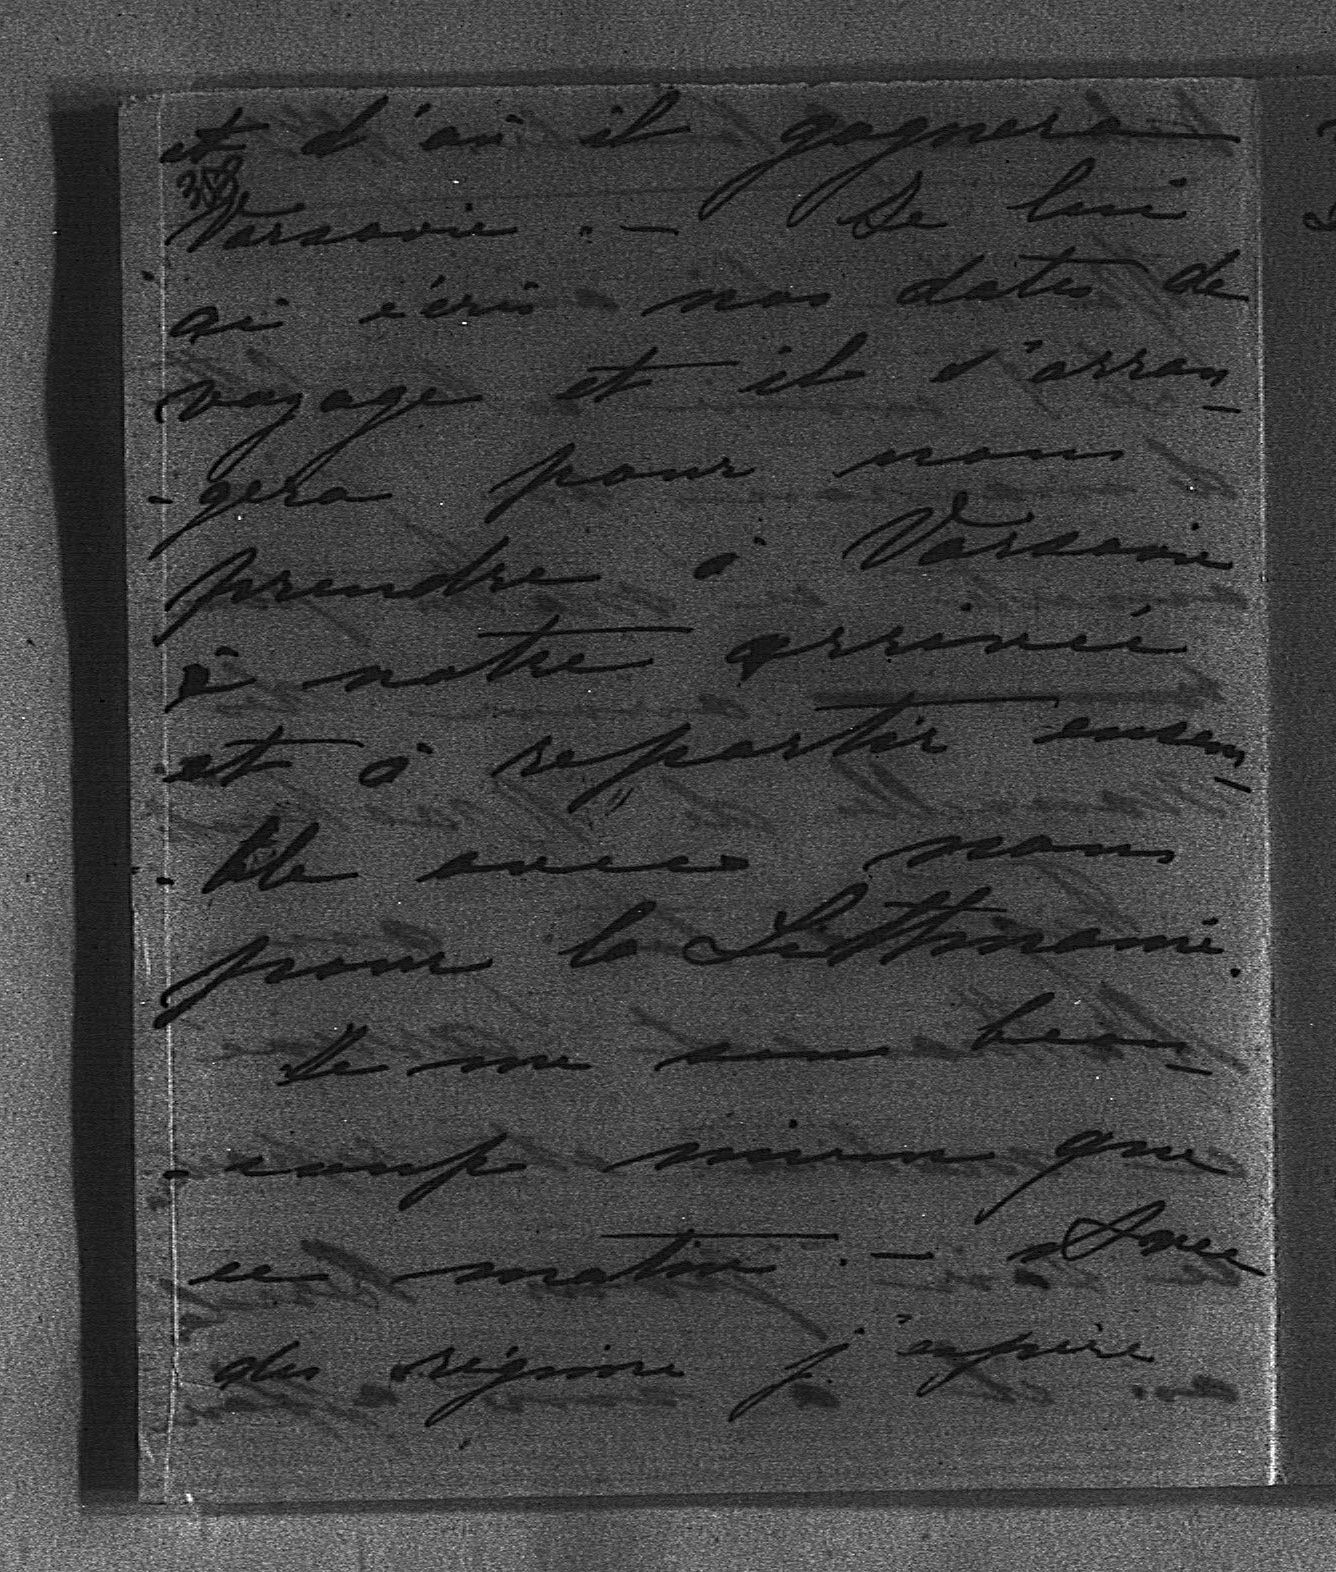 et d'où il gagnera
Varsovie. - Je lui
ai écris nos dates de
voyage et il s'arran-
-gera pour nous
prendre à Varsovie
à notre arrivée
et à repartir ensem-
-ble avec nous
pour la Litthuanie.
Je me sens beau-
-coup mieux que
ce matin. - Avec
du régime j'espère